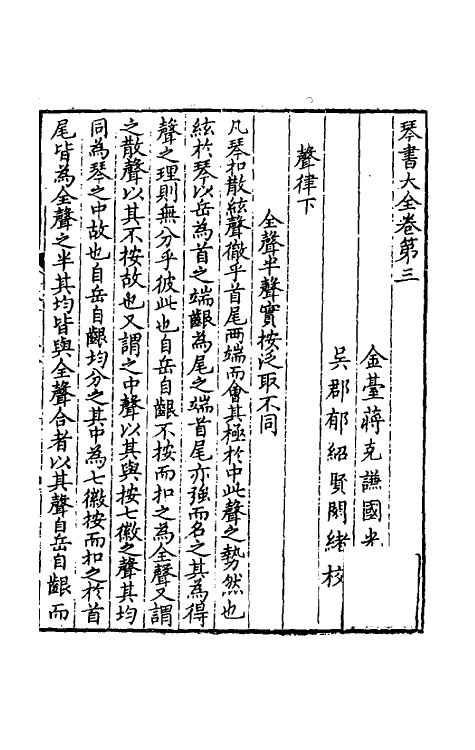 琴書大全卷第三
金臺蔣克謙國光
吳郡郁紹賢閎緒校
聲律下
全聲半聲實按泛取不同
凡琴扣散絃聲徹乎首尾兩端而會其極於中此聲之勢然也
絃於琴以岳為首之端齦為尾之端首尾亦強而名之其為得
聲之理則無分乎彼此也自岳自齦不按而扣之為全聲又謂
之散聲以其不按故也又謂之中聲以其與按七徽之聲其均
同為琴之中故也自岳自齦均分之其中為七徽按而扣之於首
尾皆為全聲之半其均皆與全聲合者以其聲自岳自齦而